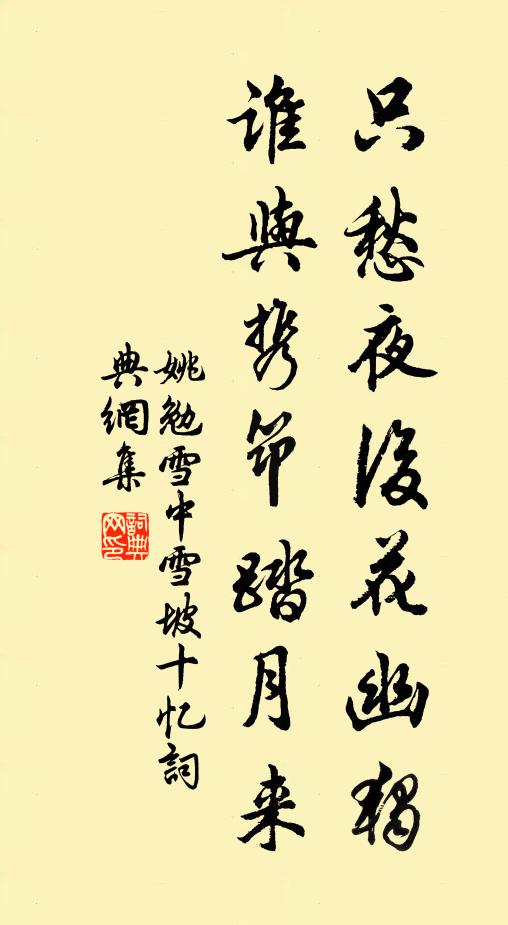 只愁夜深花幽獨
誰與携笻踏月来
姚勉雪中雪坡十忆詞
典網集
詞典網印